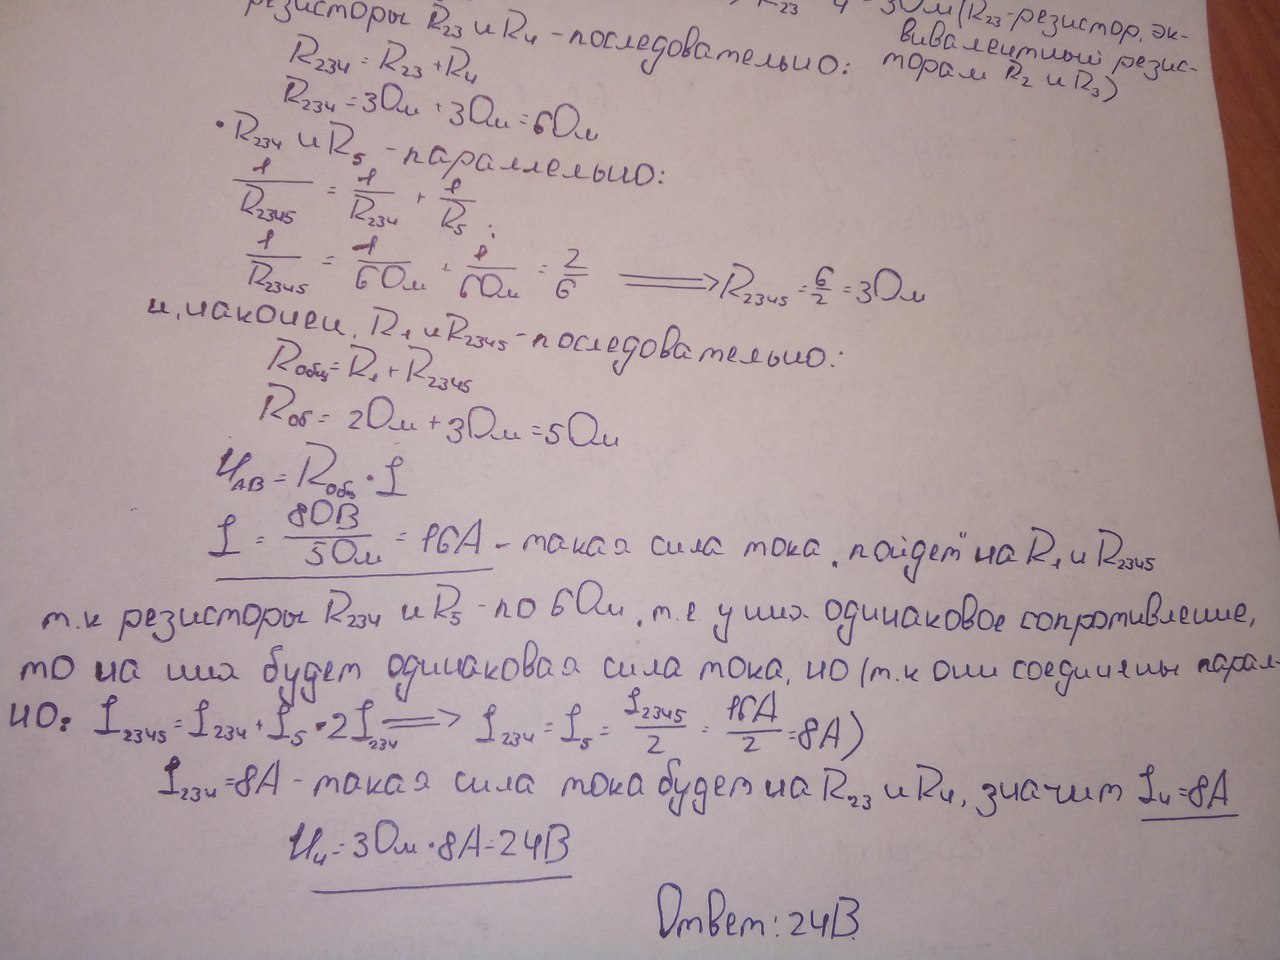 R₂₃ 4 = 3Ом (R₂₃-резистор, эк-
вивалентный резис-
торам R₂ и R₃)
резисторы R₂₃ и R₄ - последовательно:
R₂₃₄ = R₂₃ + R₄
R₂₃₄ = 3Ом + 3Ом = 6Ом
• R₂₃₄ и R₅ - параллельно:
1/R₂₃₄₅ = 1/R₂₃₄ + 1/R₅ ;
1/R₂₃₄₅ = 1/6Ом + 1/6Ом = 2/6 ⟹ R₂₃₄₅ = 6/2 = 3Ом
и, наконец, R₁ и R₂₃₄₅ - последовательно:
Rобщ = R₁ + R₂₃₄₅
Rоб = 2Ом + 3Ом = 5Ом
U_AB = Rобщ · I
I = 80В/5Ом = 16А - такая сила тока „пойдет“ на R₁ и R₂₃₄₅
т.к резисторы R₂₃₄ и R₅ - по 6Ом, т.е у них одинаковое сопротивление,
то на них будет одинаковая сила тока, но (т.к они соединены парал-
но: I₂₃₄₅ = I₂₃₄ + I₅ = 2I₂₃₄ ⟹ I₂₃₄ = I₅ = I₂₃₄₅/2 = 16А/2 = 8А)
I₂₃₄ = 8А - такая сила тока будет на R₂₃ и R₄, значит I₄ = 8А
U₄ = 3Ом · 8А = 24В
Ответ: 24В.